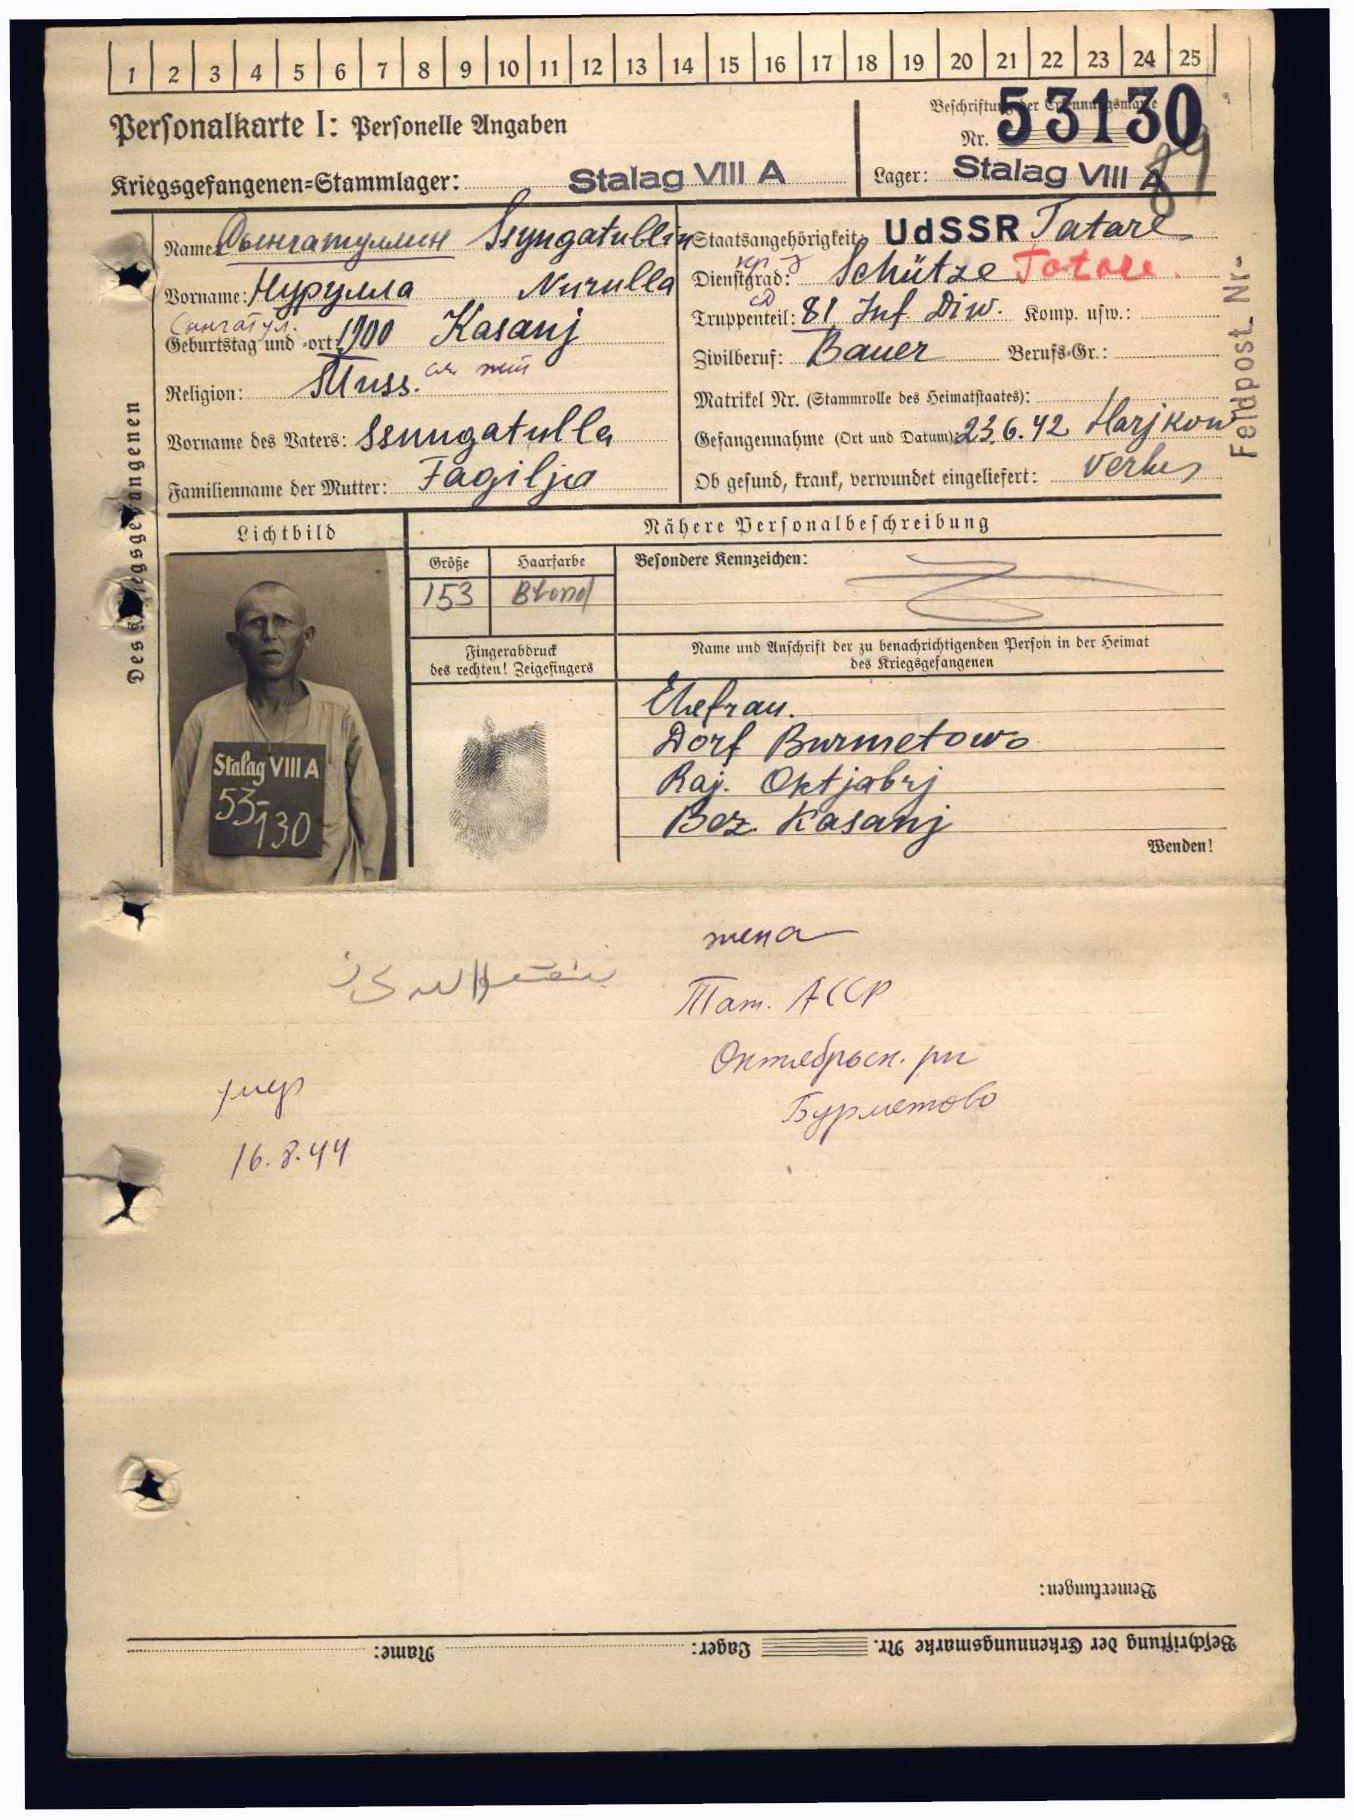 1 2 3 4 5 6 7 8 9 10 11 12 13 14 15 16 17 18 19 20 21 22 23 24 25
Personalkarte I: Personelle Angaben
Beschriftung der Erkennungsmarke
Nr. 53130
Kriegsgefangenen=Stammlager: Stalag VIII A
Lager: Stalag VIII A
89
Des Kriegsgefangenen
Name: Сынгатуллин Ssyngatullin
Vorname: Нурулла Nurulla
Сингатул.
Geburtstag und -ort: 1900 Kasanj
Religion: Muss.
Vorname des Vaters: Ssungatulla
Familienname der Mutter: Fagilja
Staatsangehörigkeit: UdSSR Tatare
кр-ц
Dienstgrad: Schütze Tatare.
сд
Truppenteil: 81 Inf. Diw. Komp. usw.:
Zivilberuf: Bauer Berufs-Gr.:
Matrikel Nr. (Stammrolle des Heimatstaates):
Gefangennahme (Ort und Datum): 23.6.42 Harjkow
Ob gesund, krank, verwundet eingeliefert:
Feldpost Nr-
Lichtbild
Stalag VIII A
53-
130
Nähere Personalbeschreibung
Größe Haarfarbe Besondere Kennzeichen:
153 Blond
Fingerabdruck
des rechten! Zeigefingers
Name und Anschrift der zu benachrichtigenden Person in der Heimat
des Kriegsgefangenen
Ehefrau.
Dorf Burmetowo
Raj. Oktjabrj
Bez. Kasanj
Wenden!
жена
Тат. АССР
Октябрьск. рн
Бурметово
умер
16.8.44
Bemerkungen:
Beschriftung der Erkennungsmarke Nr. Lager: Name: